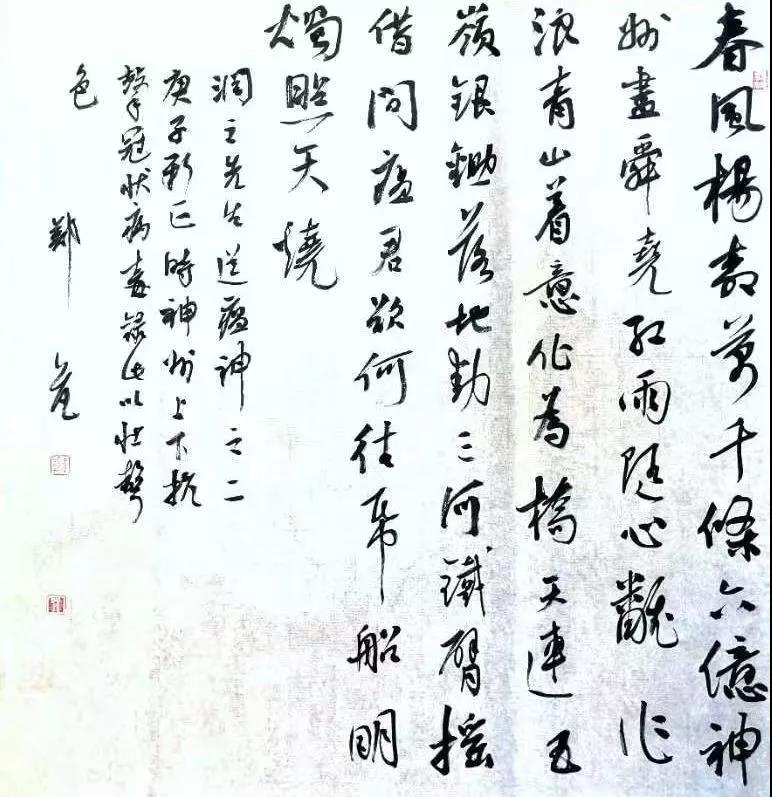 春風楊柳萬千條六億神
州盡舜堯紅雨隨心飜作
浪青山着意化為橋天連五
嶺銀鋤落地動三河鐵臂搖
借問瘟君欲何往帋船明
燭照天燒
潤之先生送瘟神之二
庚子新正時神州上下抗
擊冠狀病毒錄此以壯聲
色
鄭